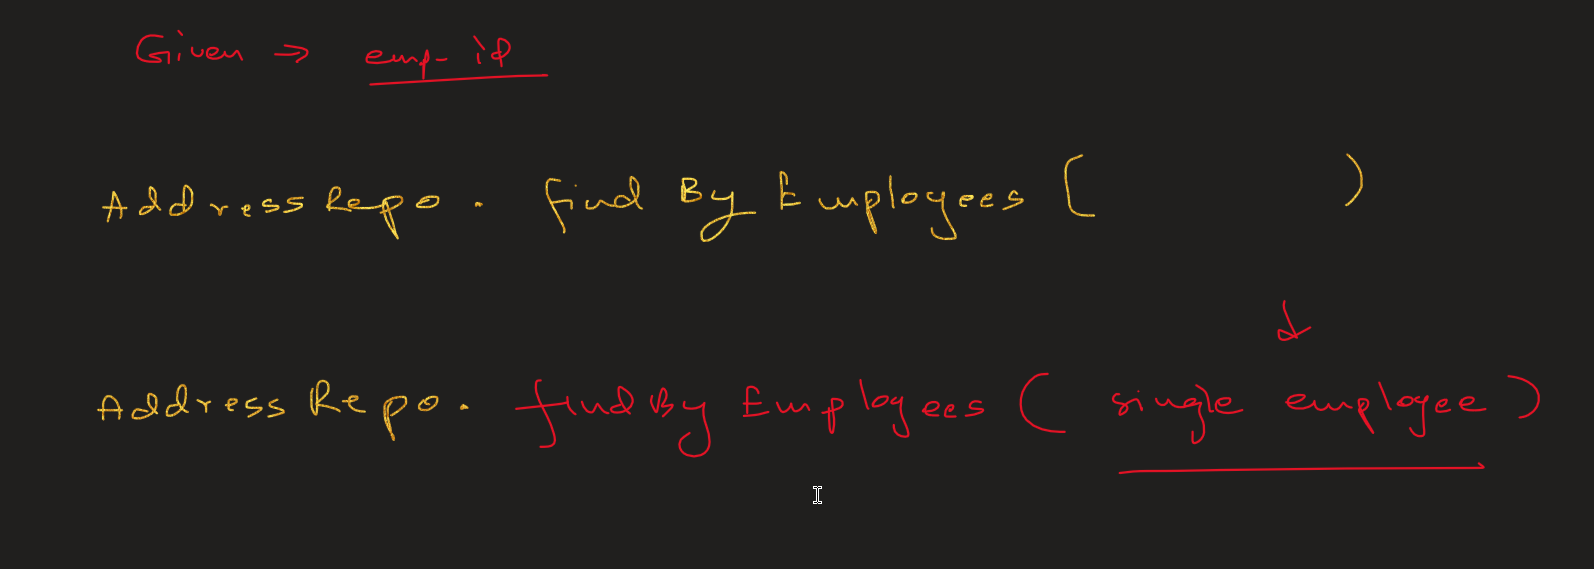 Given → emp-id
AddressRepo. find By Employees ( )
AddressRepo. findBy Employees ( single employee )